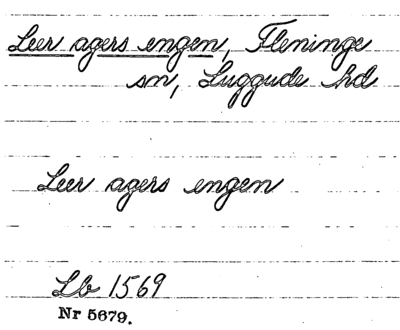 Leer agers engen, Fleninge
sn, Luggude hd
Leer agers engen
Lb 1569
Nr 5679.